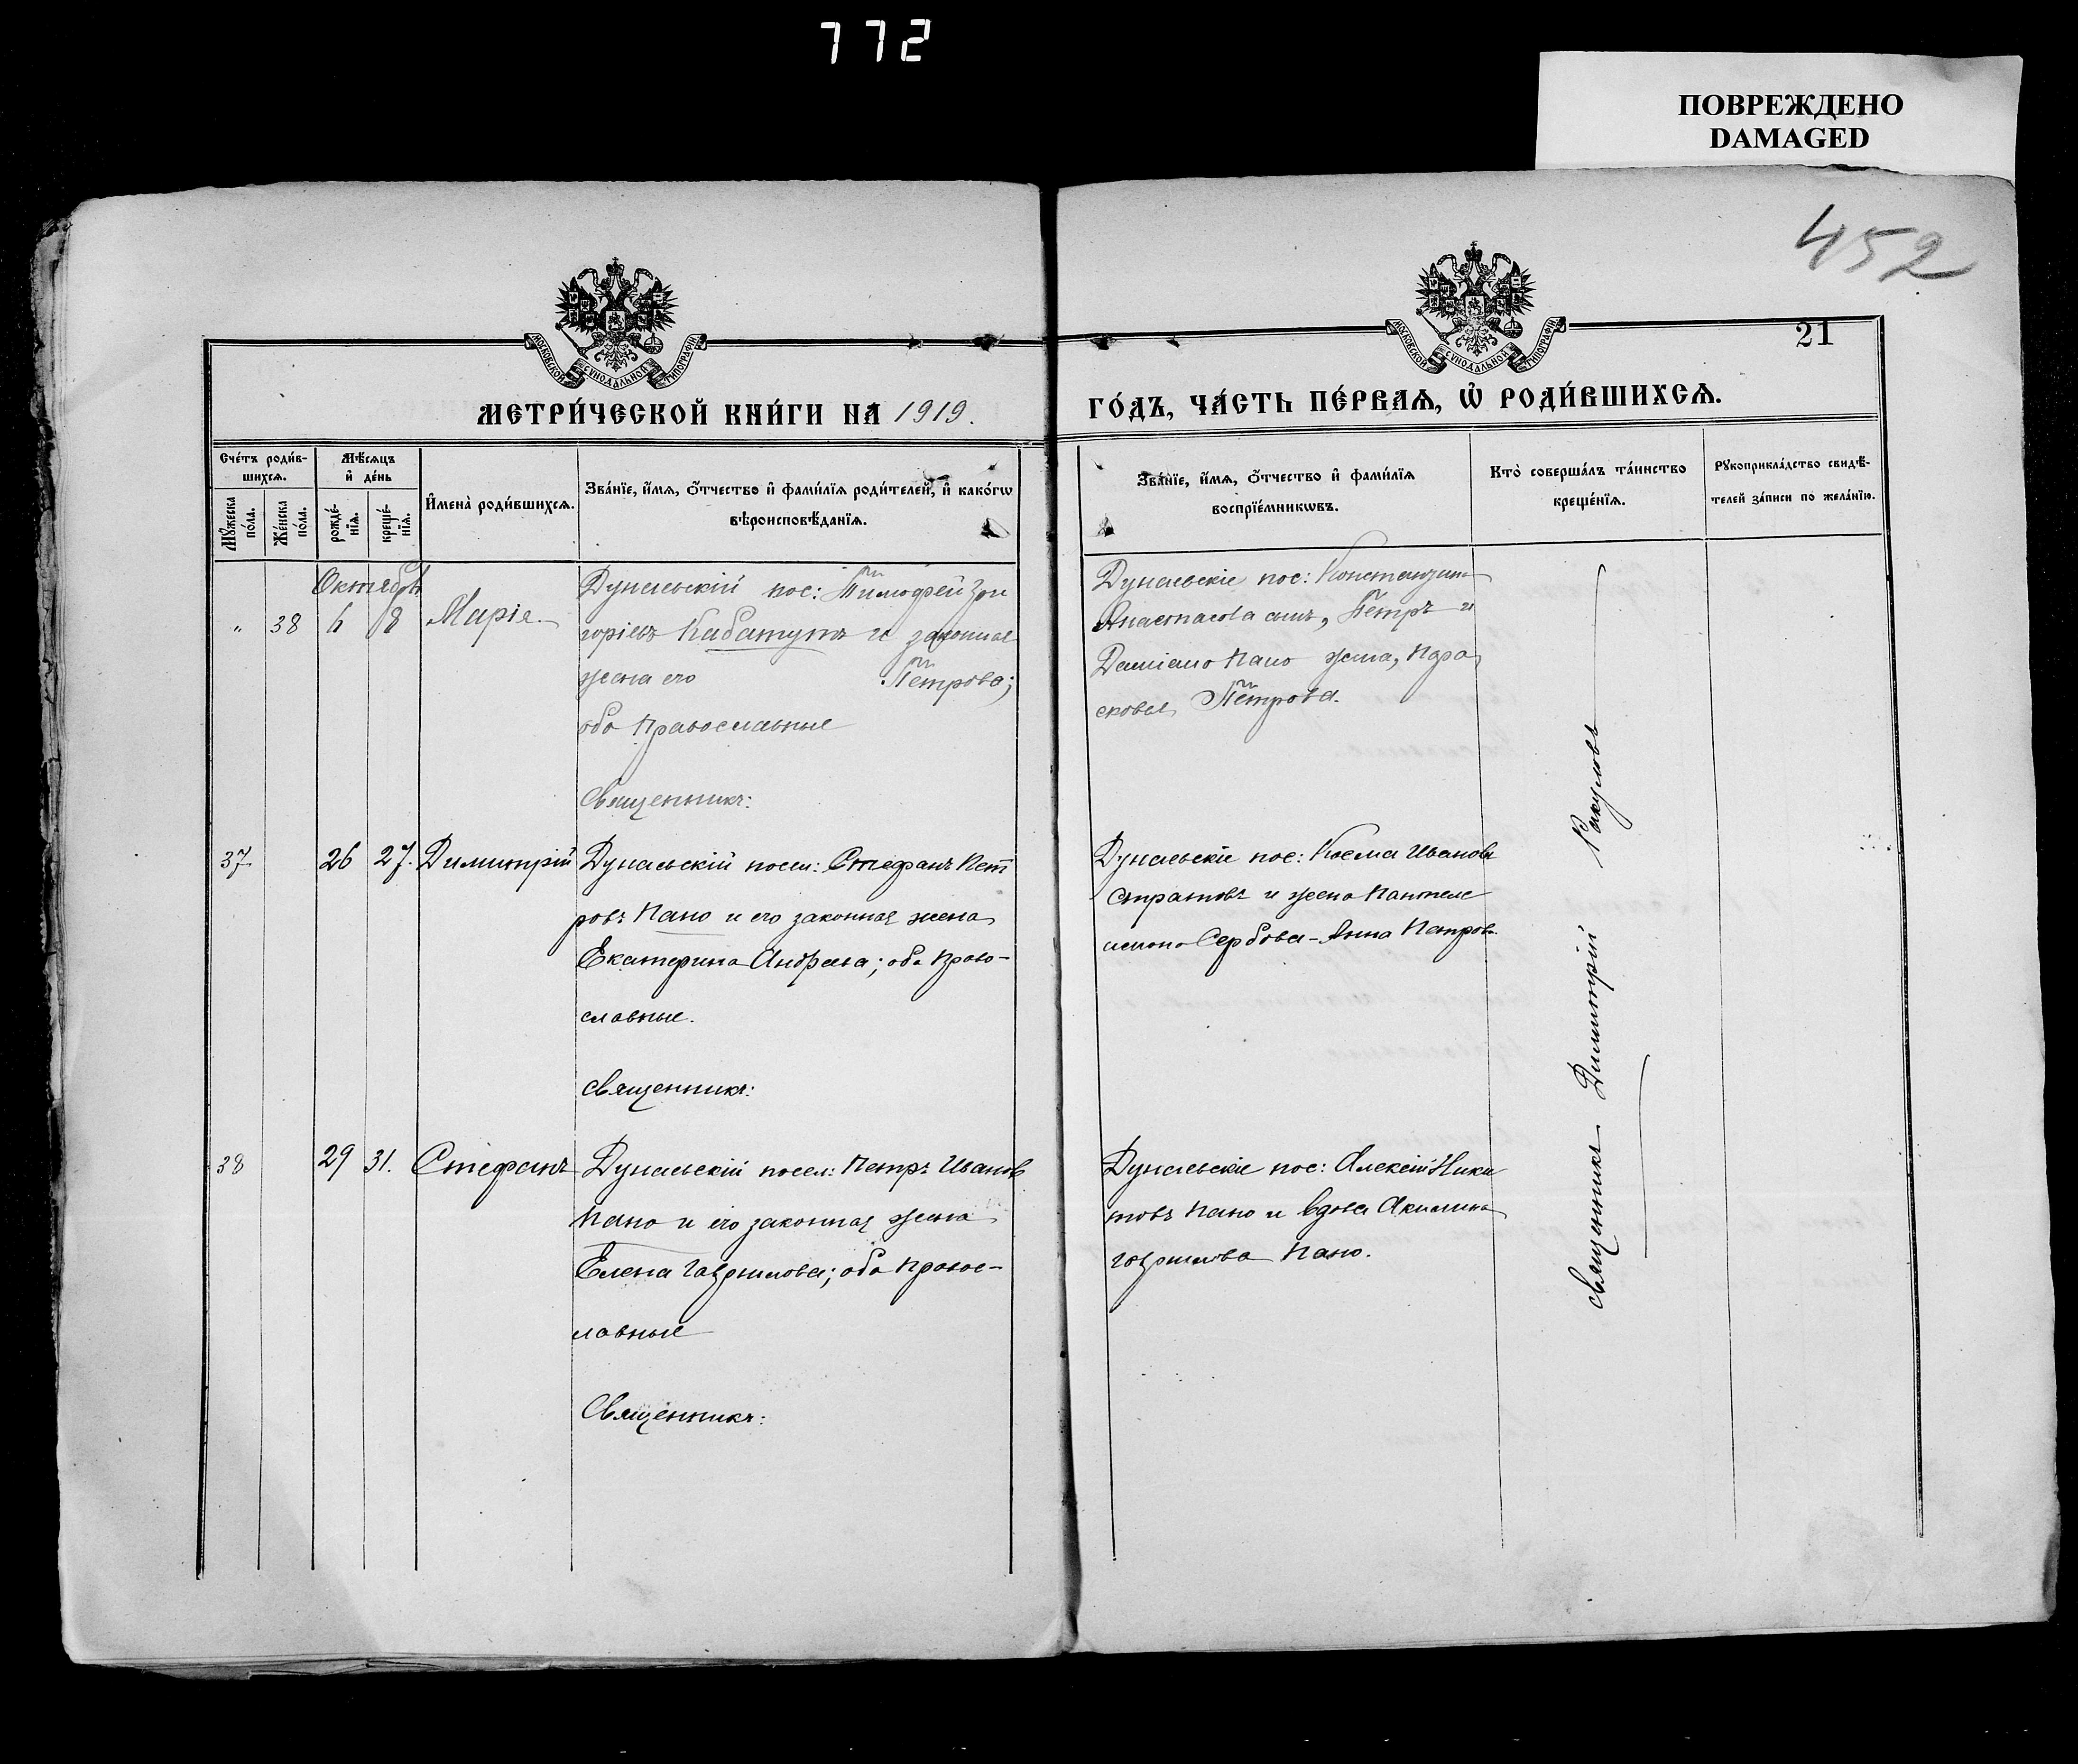 772
ПОВРЕЖДЕНО
DAMAGED
452
21
МОСКОВСКОЙ СѴНОДАЛЬНОЙ ТИПОГРАФІИ
МОСКОВСКОЙ СѴНОДАЛЬНОЙ ТИПОГРАФІИ
МЕТРИ́ЧЕСКОЙ КНИ́ГИ НА 1919.
ГО́ДЪ, ЧА́СТЬ ПЕ́РВАѦ, Ѡ҆ РОДИ́ВШИХСѦ.
Сче́тъ роди́в-
шихсѧ.
Мꙋ́жеска
по́ла.
Же́нска
по́ла.
Мѣ́сѧцъ
и҆ де́нь
рожде́-
нїѧ.
креще́-
нїѧ.
И҆мена̀ роди́вшихсѧ.
Зва́нїе, и҆́мѧ, ѻ҆́тчество и҆ фами́лїѧ роди́телей, и҆ како́гѡ
вѣроисповѣ́данїѧ.
Зва́нїе, и҆́мѧ, ѻ҆́тчество и҆ фами́лїѧ
воспрїе́мникѡвъ.
Кто̀ соверша́лъ та́инство
креще́нїѧ.
Рꙋкоприкла́дство свидѣ́-
телей за́писи по жела́нїю.
Октябрь
„ 38 6 8 Марія
Дунаевскій пос: Тимофей Гри
горіевъ Кабатунъ и законная
жена его Петрова;
оба православные
Священникъ:
Дунаевскіе пос: Константинъ
сынъ, Петръ и
Даміана Пано жена, Пара
скова Петрова.
37 26 27. Димитрій
Дунаевскій посел: Стефанъ Пет
ровъ Пано и его законная жена
Екатерина Андреева; оба право-
славные.
Священникъ:
Дунаевскіе пос: Косма Ивановъ
Стратовъ и жена Пантеле
имона Сербова - Анна Петров.
38 29 31. Стефанъ
Дунаевскій посел: Петръ Иванов
Пано и его законная жена
Елена Гаврилова; оба правос-
лавные
Священникъ:
Дунаевскіе пос: Алексій Ники
товъ Пано и вдова Акилина
Гаврилова Пано.
Священникъ Димитрій